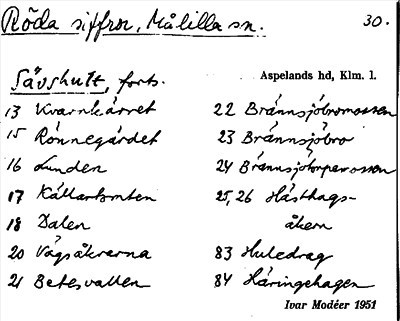 Röda siffror, Målilla sn. 30.
Aspelands hd, Klm. l.
Sävshult, forts.
13 Kvarnkärret
15 Rönnegärdet
16 Lunden
17 Källarkomten
18 Dalen
20 Vägsåkrarna
21 Betesvallen
22 Brännsjöbromossen
23 Brännsjöbro
24 Brännsjötorpamossen
25, 26 Hästhags-
åkern
83 Huledrag
84 Häringehagen
Ivar Modéer 1951